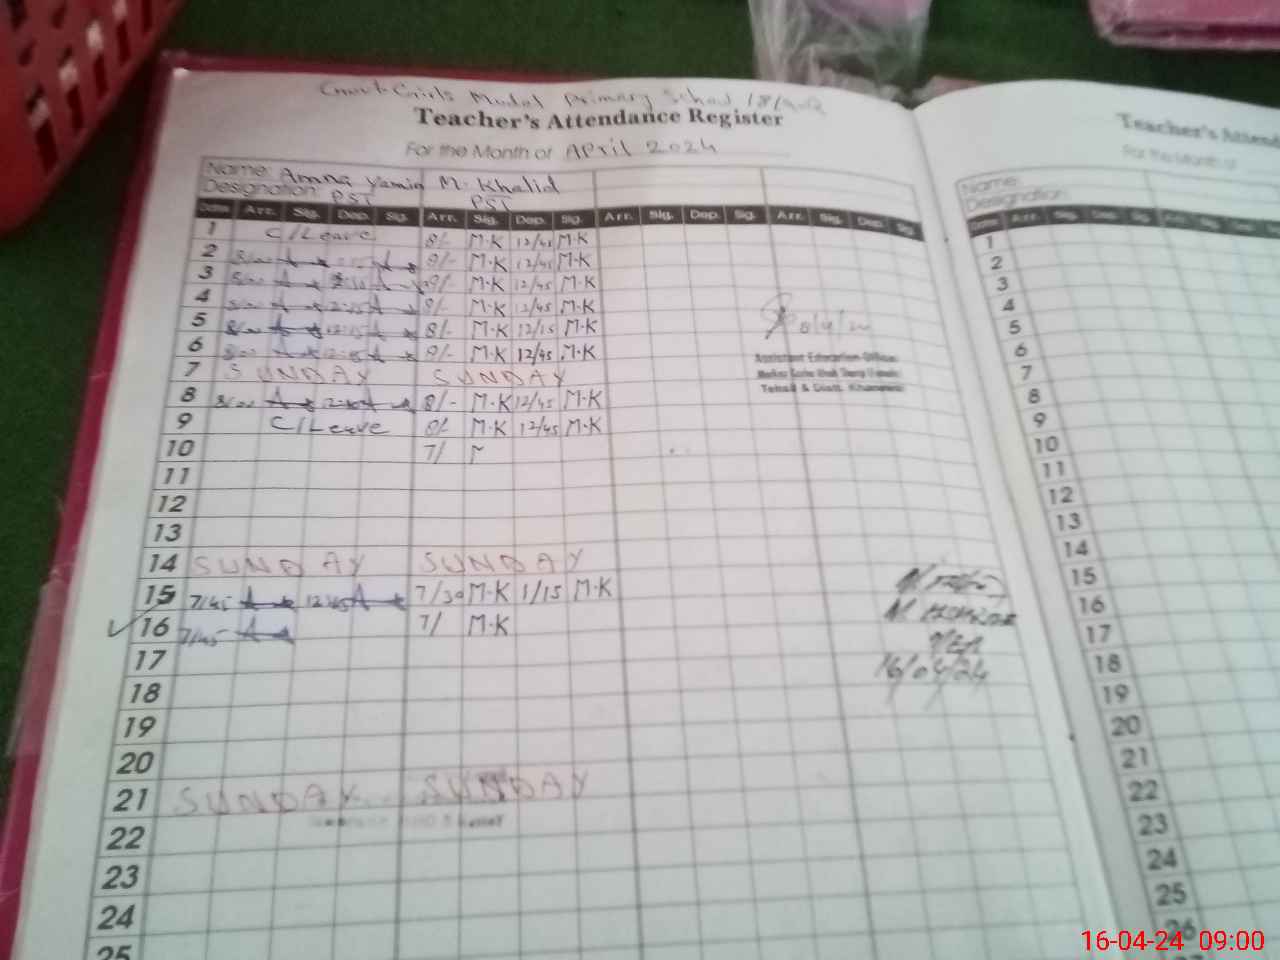 Govt. Girls Model Primary School 18/
Teacher's Attendance Register
For the Month of April 2024
Name: Amna Yamin M. Khalid
Designation: PST PST
Date Arr. Sig. Dep. Sig. Arr. Sig. Dep. Sig. Arr. Sig. Dep. Sig. Arr. Sig. Dep. Sig.
1 C/Leave 8/- M.K 12/45 M.K
2 8/00 A 8/- M.K 12/45 M.K
3 8/00 A A 8/- M.K 12/45 M.K
4 8/00 A A 8/- M.K 12/45 M.K
5 8/00 A 12:15 A 8/- M.K 12/15 M.K
6 8/00 A 12:45 A 8/- M.K 12/45 M.K
7 SUNDAY SUNDAY
8 8/00 A A 8/- M.K 12/45 M.K
9 C/Leave 8/- M.K 12/45 M.K
10 7/
11
12
13
14 SUNDAY SUNDAY
15 7/45 A 12/45 A 7/30 M.K 1/15 M.K
16 7/45 A 7/ M.K
17
18
19
20
21 SUNDAY SUNDAY
22
23
24
25
Assistant Education Officer
Tehsil & Distt. Khanewal
MEA
16/04/24
Teacher's Attend
For the Month of
Name:
Designation:
Date Arr. Sig. Dep. Sig.
1
2
3
4
5
6
7
8
9
10
11
12
13
14
15
16
17
18
19
20
21
22
23
24
25
26
16-04-24 09:00